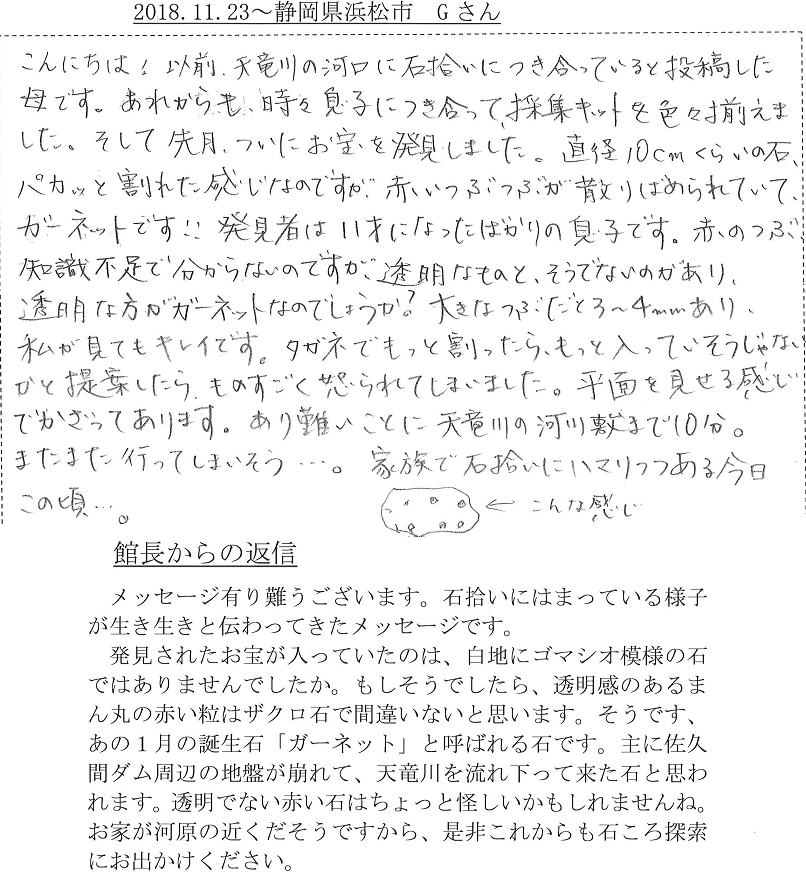 2018.11.23～静岡県浜松市　Gさん
こんにちは！以前、天竜川の河口に石拾いにつき合っていると投稿した
母です。あれからも、時々息子につき合って、採集キットを色々揃えま
した。そして先月、ついにお宝を発見しました。直径10cmくらいの石、
パカッと割れた感じなのですが、赤いつぶつぶが散りばめられていて、
ガーネットです!! 発見者は11才になったばかりの息子です。赤いつぶ、
知識不足で分からないのですが、透明なものと、そうでないのがあり、
透明な方がガーネットなのでしょうか？大きなつぶだと3～4mmあり、
私が見てもキレイです。タガネでもっと割ったら、もっと入っていそうじゃない
かと提案したら、ものすごく怒られてしまいました。平面を見せる感じ
でかざってあります。あり難いことに天竜川の河川敷まで10分。
またまた行ってしまいそう…。家族で石拾いにハマりつつある今日
この頃…。
← こんな感じ
館長からの返信
　メッセージ有り難うございます。石拾いにはまっている様子
が生き生きと伝わってきたメッセージです。
　発見されたお宝が入っていたのは、白地にゴマシオ模様の石
ではありませんでしたか。もしそうでしたら、透明感のあるま
ん丸の赤い粒はザクロ石で間違いないと思います。そうです、
あの１月の誕生石「ガーネット」と呼ばれる石です。主に佐久
間ダム周辺の地盤が崩れて、天竜川を流れ下って来た石と思わ
れます。透明でない赤い石はちょっと怪しいかもしれませんね。
お家が河原の近くだそうですから、是非これからも石ころ探索
にお出かけください。